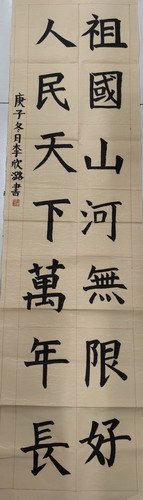 祖國山河無限好
人民天下萬年長
庚子冬月李欣潞書